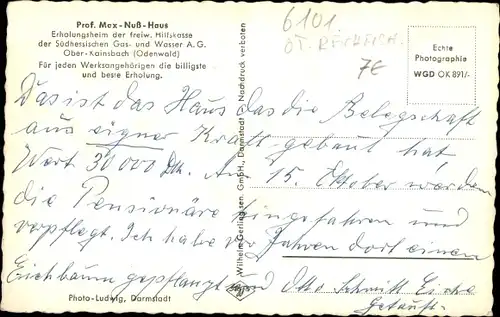 Prof. Max-Nuß-Haus
Erholungsheim der freiw. Hilfskasse
der Südhessischen Gas- und Wasser A.G.
Ober-Kainsbach (Odenwald)
Für jeden Werksangehörigen die billigste
und beste Erholung.
6101
OT. REICHELSH.
7€
Echte
Photographie
WGD OK 891/-
Das ist das Haus das die Belegschaft
aus eigner Kraft gebaut hat
Wert 30000 DM. Am 15. Oktober werden
die Pensionäre hingefahren und
verpflegt. Ich habe vor Jahren dort einen
Eichbaum gepflanzt und Otto Schmitt Eiche
Getauft.
Wilhelm Gerling sen. GmbH., Darmstadt Nachdruck verboten
Photo-Ludwig, Darmstadt